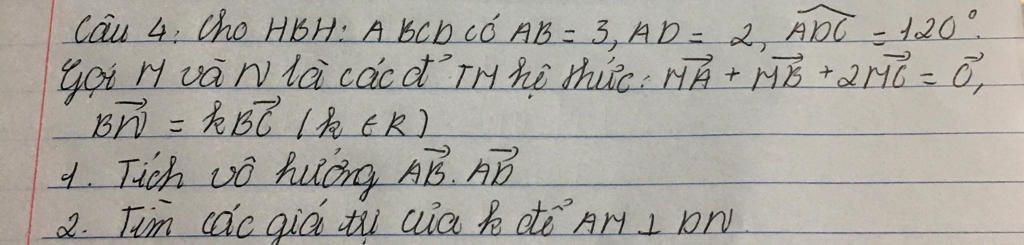 Câu 4: Cho HBH: ABCD có AB = 3, AD = 2, \widehat{ADC} = 120°.
Gọi M và N là các đ' TM hệ thức: \vec{MA} + \vec{MB} + 2\vec{MC} = \vec{0},
\vec{BN} = k\vec{BC} (k ∈ R)
1. Tích vô hướng \vec{AB}.\vec{AD}
2. Tìm các giá trị của k để AM ⊥ DN